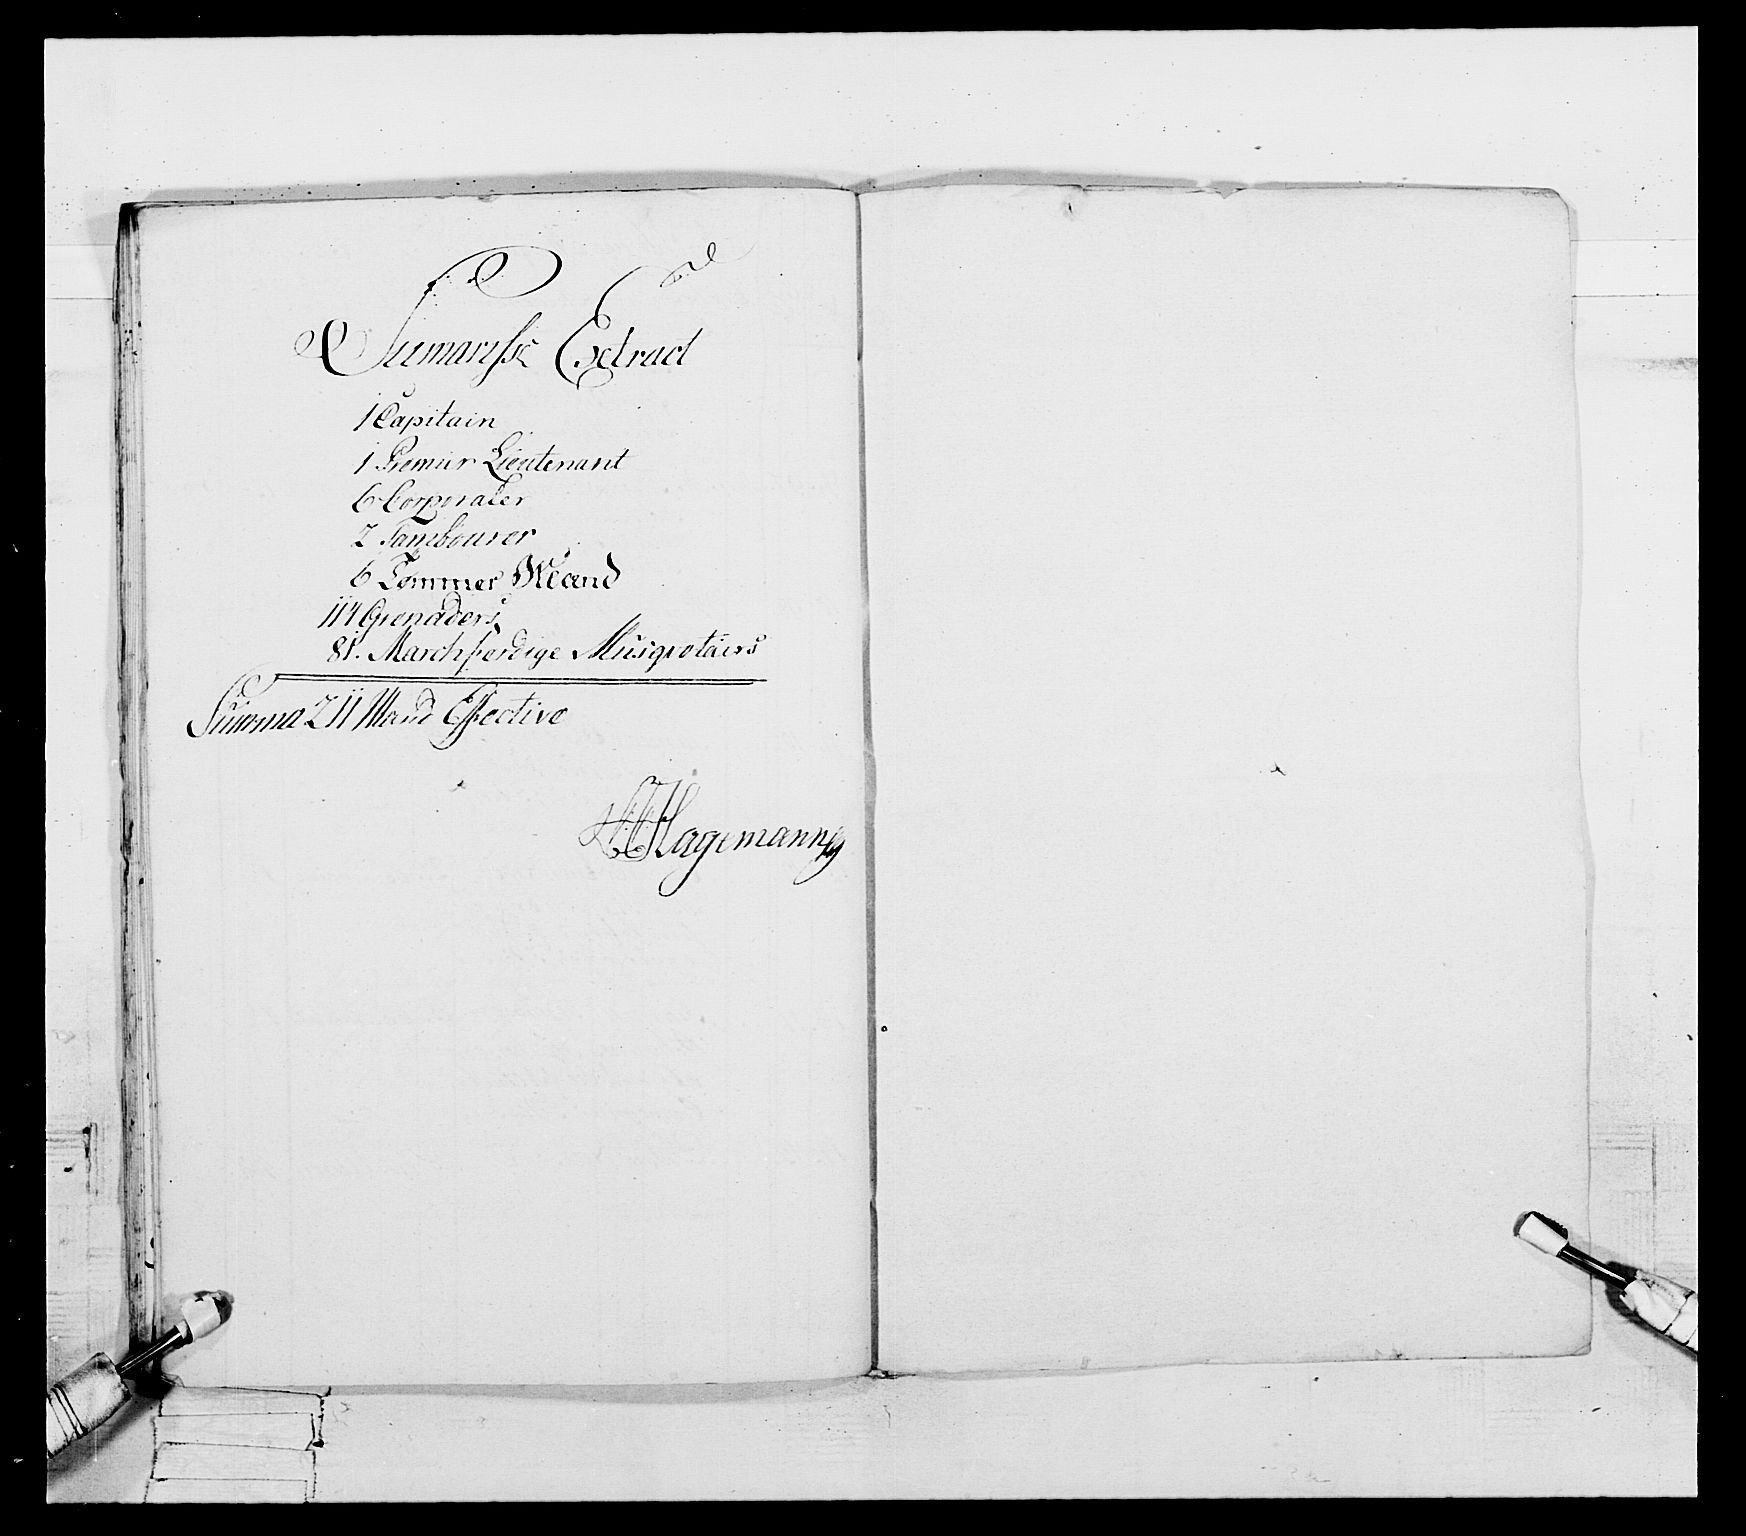 Sumarisk Extract
1 Capitain
1 Premier Lieutenant
6 Corporaler
2 Tambourer
6 Tømmer Mænd
114 Grenaders
81. Marchferdige Musqvetairs
Summa 211 Mand Effective
Hagemann